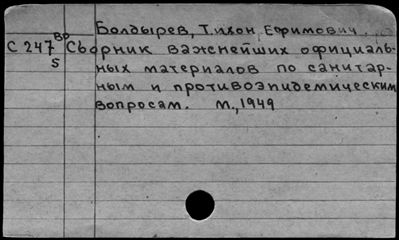 Болдырев, Тихон Ефимович
во
С 247 Сборник важнейших официаль-
5 ных материалов по санитар-
ным и противоэпидемическим
вопросам. М., 1949